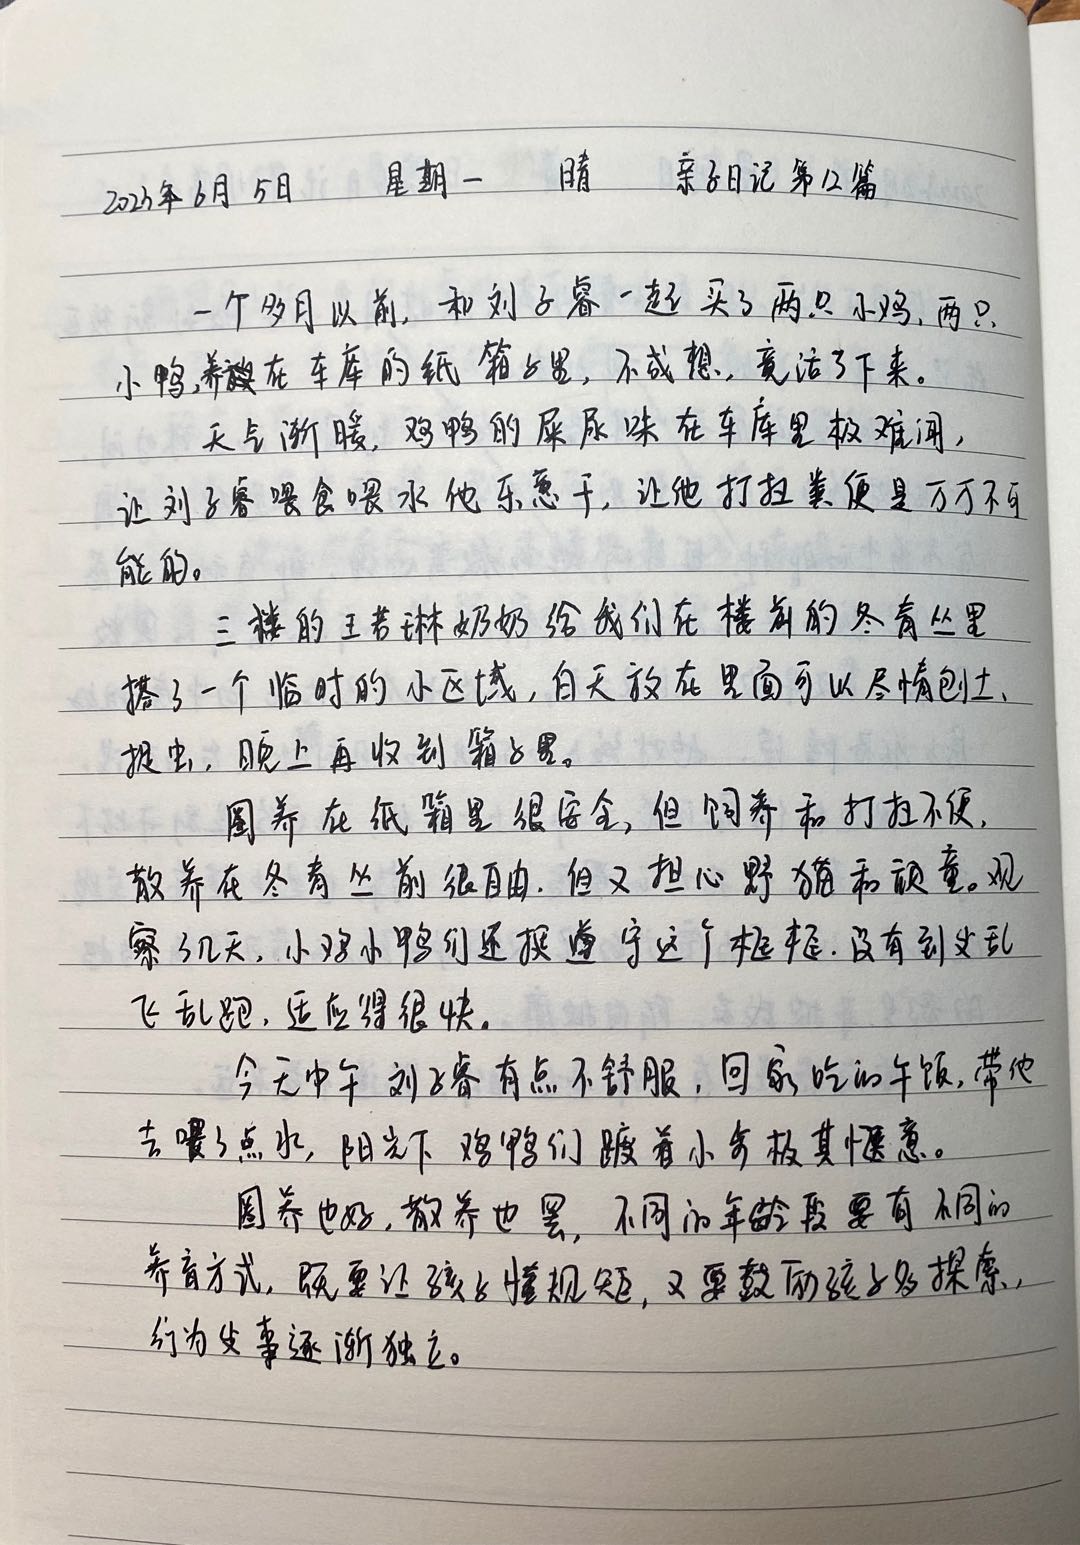 2023年6月5日 星期一 晴 亲子日记第12篇
一个多月以前，和刘子睿一起买了两只小鸡，两只
小鸭，养在车库的纸箱子里，不成想，竟活了下来。
天气渐暖，鸡鸭的屎尿味在车库里极难闻，
让刘子睿喂食喂水他乐意干，让他打扫粪便是万万不可
能的。
三楼的王若琳奶奶给我们在楼前的冬青丛里
搭了一个临时的小区域，白天放在里面可以尽情刨土、
捉虫，晚上再收到箱子里。
圈养在纸箱里很安全，但饲养和打扫不便，
散养在冬青丛前很自由，但又担心野猫和顽童。观
察了几天，小鸡小鸭们还挺遵守这个框框，没有到处乱
飞乱跑，适应得很快。
今天中午刘子睿有点不舒服，回家吃的午饭，带他
去喂了点水，阳光下鸡鸭们踱着小步极其惬意。
圈养也好，散养也罢，不同的年龄段要有不同的
养育方式，既要让孩子懂规矩，又要鼓励孩子多探索，
行为处事逐渐独立。